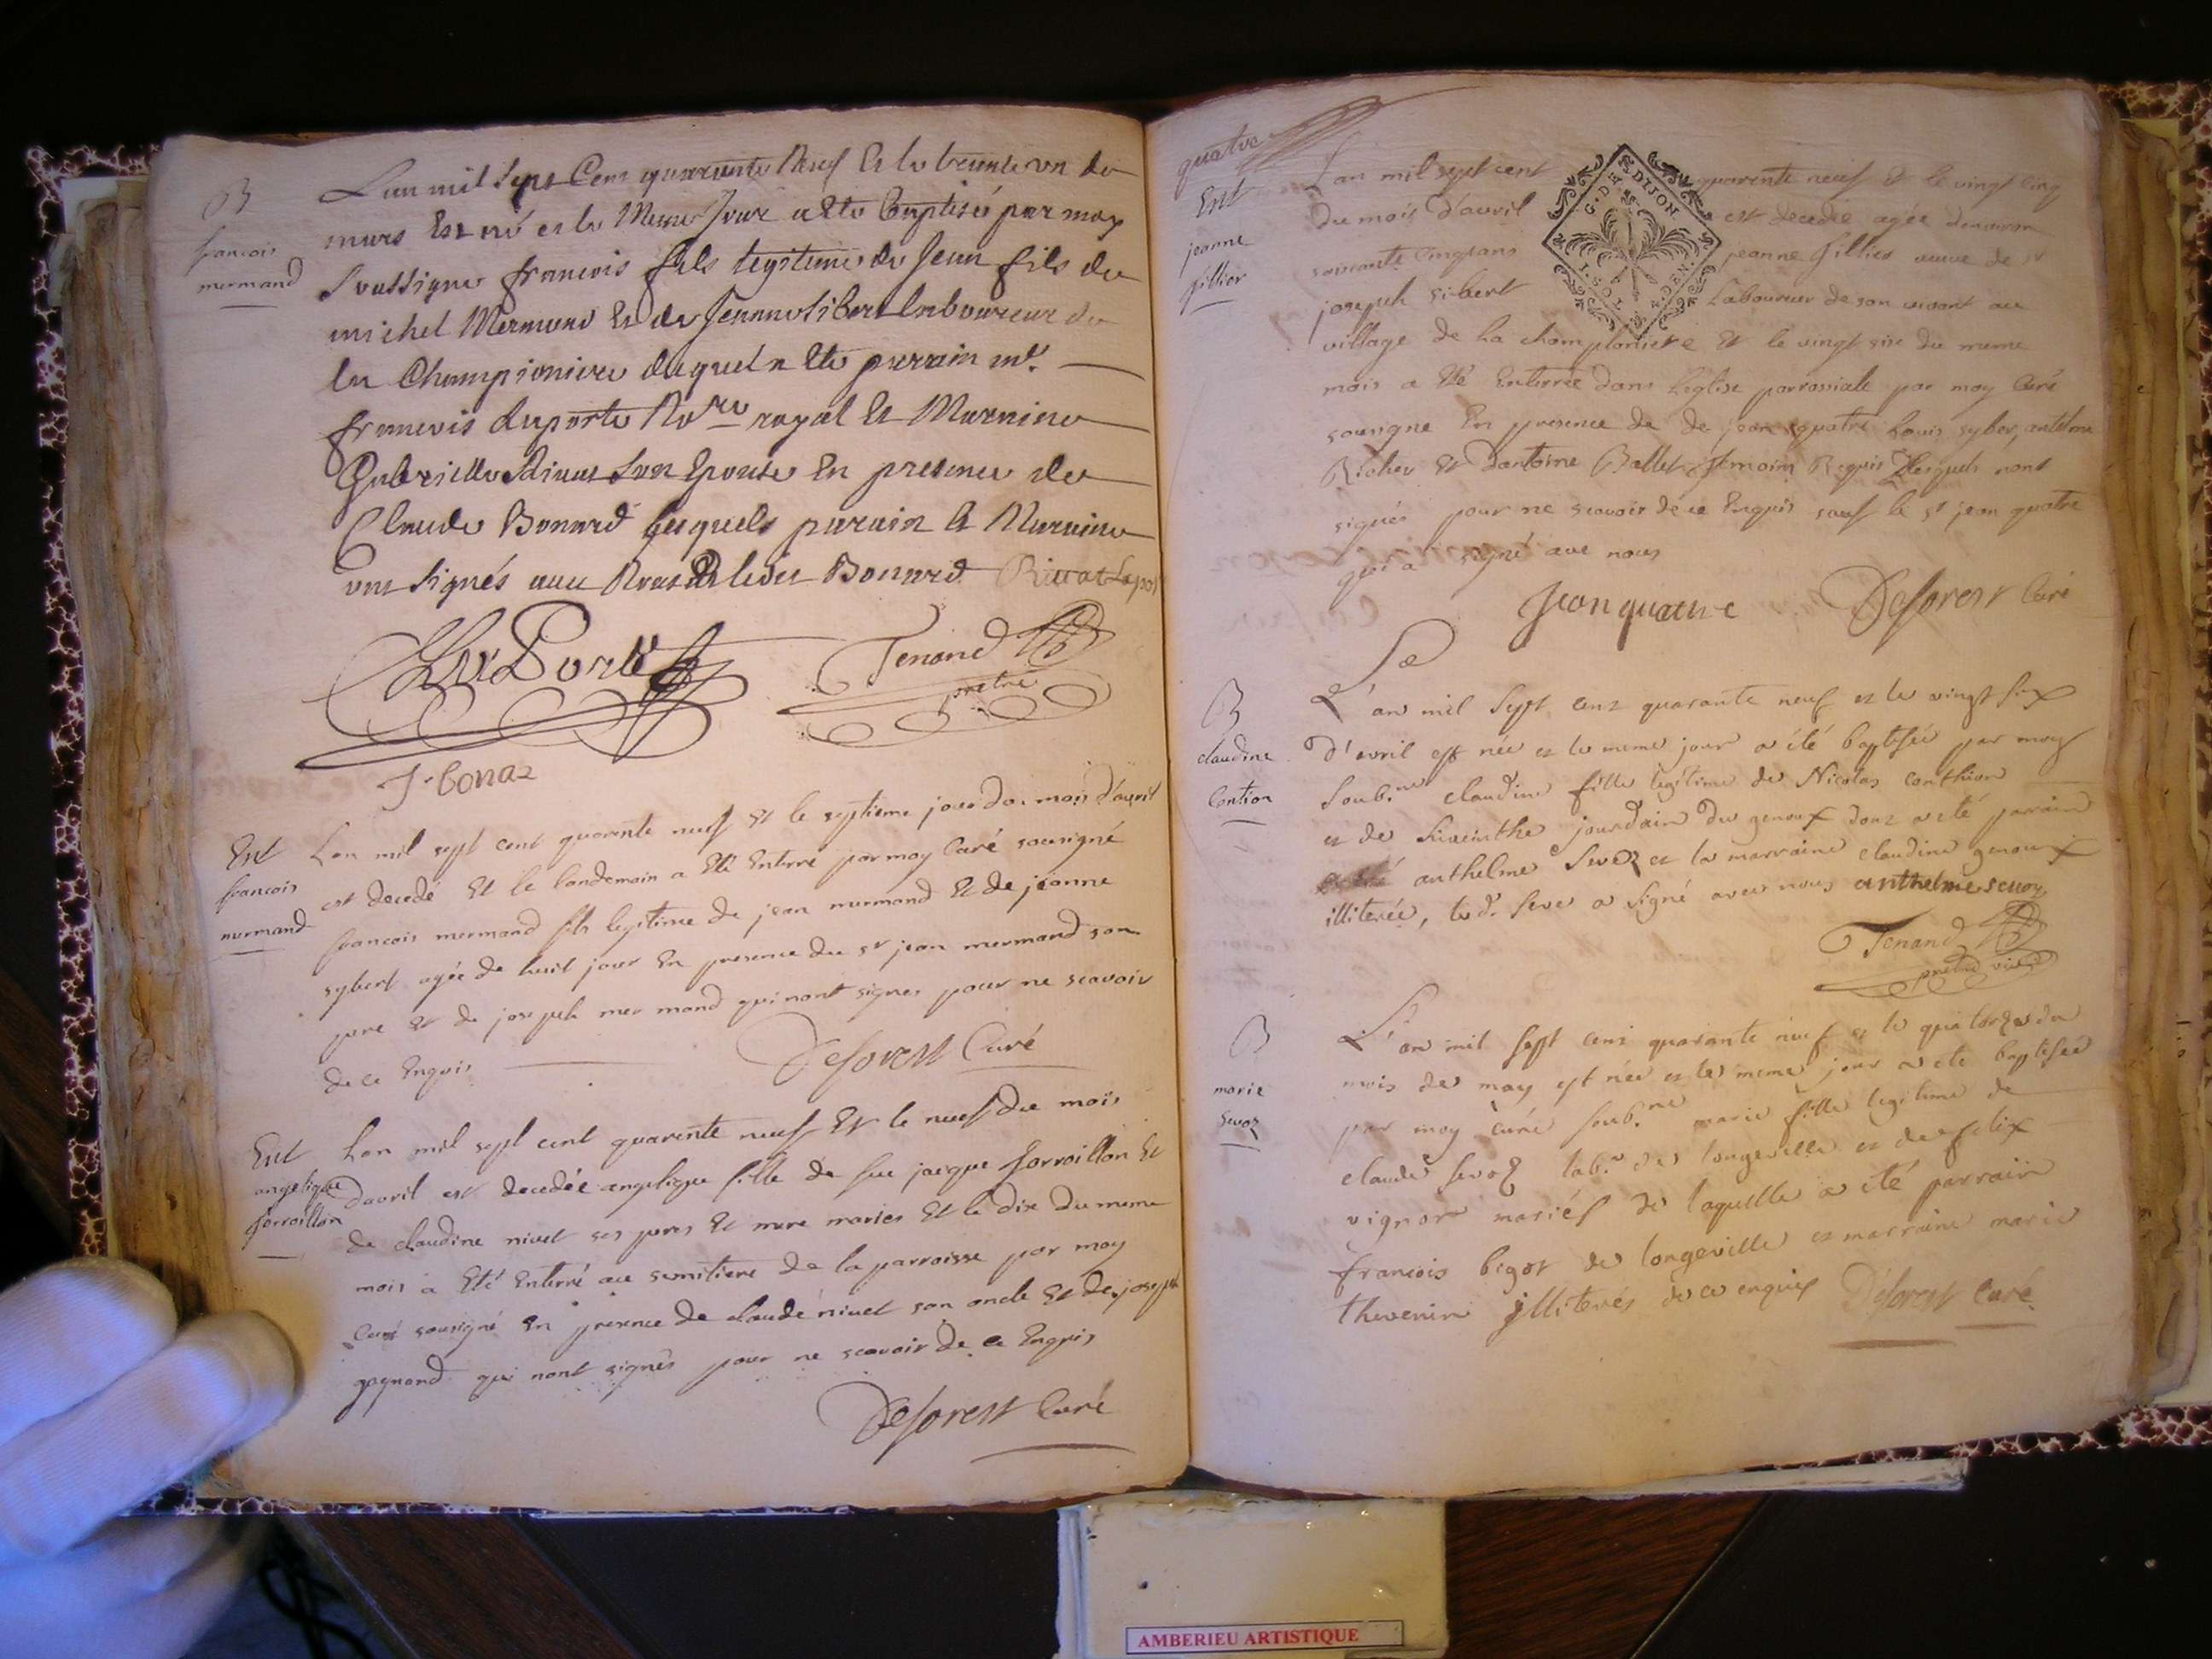 B
francois
mermand
L'an mil sept Cent quarante Neuf Et le trente un de
mars Est né et le Meme Jour a ete Baptisé par moy
Soussigne francois fils legitime de Jean fils de
michel Mermand Et de Jeanne Sibert laboureur de
la Championiere duquel a ete parrain mr.
francois duporte Nore royal Et Marraine
Gabrielle son Epouse En presence de
Claude Bonard lesquels parain Et Maraine
ont signés avec Nous Bonard Rivat Lapor
DuPorte
Tenand
pretre
J. bonaz
Ent
francois
mermand
Lan mil sept cent quarente neuf Et le septieme jour du mois d'avril
est decedé Et le landemain a Eté Enterré par moy Curé sousigné
francois mermand fils legitime de jean mermand Et de jeanne
sybert agée de huit jour En presence du sr jean mermand son
pere Et de joseph mermand qui nont signes pour ne scavoir
de ce Enquis
Deforest Curé
Ent
angelique
forroillon
Lan mil sept cent quarente neuf Et le neuf du mois
davril est decedée angelique fille de feu jacque forroillon Et
de claudine nivet ses peres Et mere maries Et le dix du meme
mois a Eté Enterré au semitiere de la parroisse par moy
Curé sousigné En presence de claude nivet son oncle Et de joseph
gagnand qui nont signés pour ne scavoir de ce Enquis
Deforest Curé
quatre
Ent
jeanne
fillier
Lan mil sept cent quarente neuf Et le vingt cinq
G. D. DE DIJON
du mois d'avril est decedée agée denviron
soixante cinq ans jeanne fillier veuve de sr
joseph sibert Laboureur de son vivant au
village de la championiere Et le vingt six du meme
mois a Eté Enterrée dans Leglise parrossiale par moy Curé
sousigne En presence de de jean quatre Louis syber, antelme
Richer Et dantoine Ballet temoins Requis Lesquels nont
signés pour ne scavoir de ce Enquis sauf le sr jean quatre
qui a signé avec nous
Jean quatre
Deforest Curé
B
claudine
Contion
L'an mil sept cent quarante neuf et le vingt six
d'avril est née et le meme jour a été baptisée par moy
soub.né claudine fille legitime de Nicolas conthion
et de hiacinthe jourdain du genoux dont a été parrain
anthelme Sevoz et la marraine claudine genoux
illiterée, led. seve a signé avec nous anthelme sevoz
Tenand
pretre vic.
B
marie
Sevoz
L'an mil sept cent quarante neuf et le quatorze du
mois de may est née et le meme jour a ete baptisée
par moy curé soub.né marie fille legitime de
claude sevoz lab.r de longeville et de felix
vignor mariés de laquelle a été parrain
francois bigot de longeville et marraine marie
thevenin illiterés de ce enquis Deforest Curé
AMBERIEU ARTISTIQUE